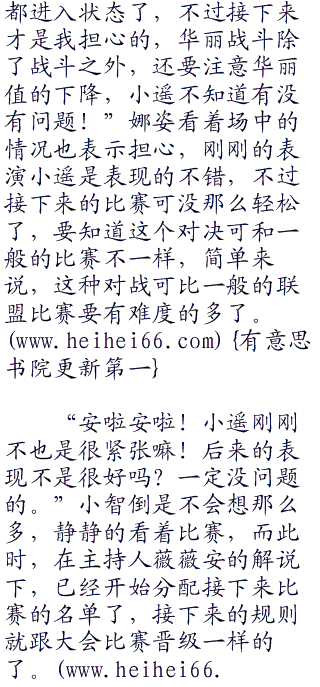 都进入状态了，不过接下来
才是我担心的，华丽战斗除
了战斗之外，还要注意华丽
值的下降，小遥不知道有没
有问题！”娜姿看着场中的
情况也表示担心，刚刚的表
演小遥是表现的不错，不过
接下来的比赛可没那么轻松
了，要知道这个对决可和一
般的比赛不一样，简单来
说，这种对战可比一般的联
盟比赛要有难度的多了。
(www.heihei66.com) {有意思
书院更新第一}
“安啦安啦！小遥刚刚
不也是很紧张嘛！后来的表
现不是很好吗？一定没问题
的。”小智倒是不会想那么
多，静静的看着比赛，而此
时，在主持人薇薇安的解说
下，已经开始分配接下来比
赛的名单了，接下来的规则
就跟大会比赛晋级一样的
了。(www.heihei66.